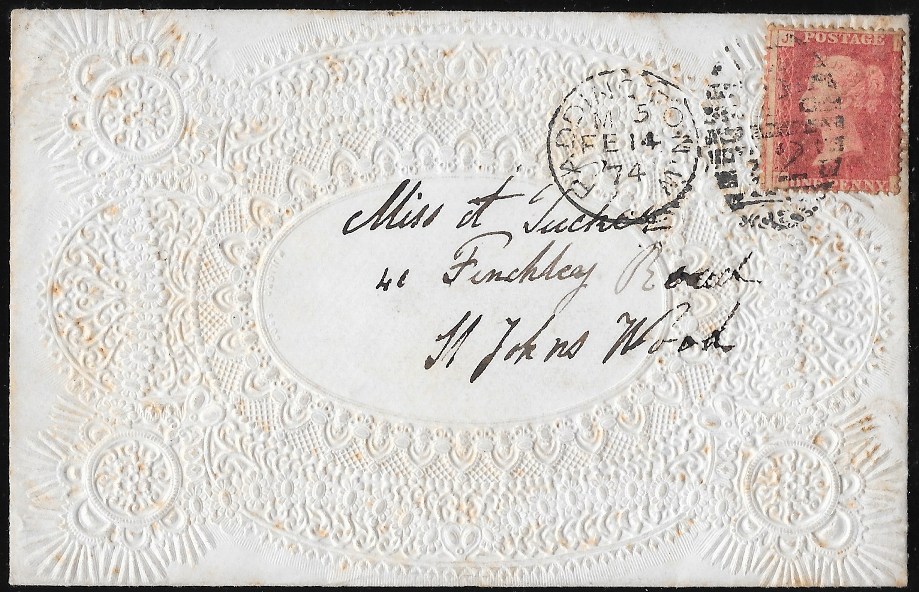 J POSTAGE
PENNY
PADDINGTON.W
M 5
FE 14
74
Miss A Tuckett
41 Finchley Road
St Johns Wood